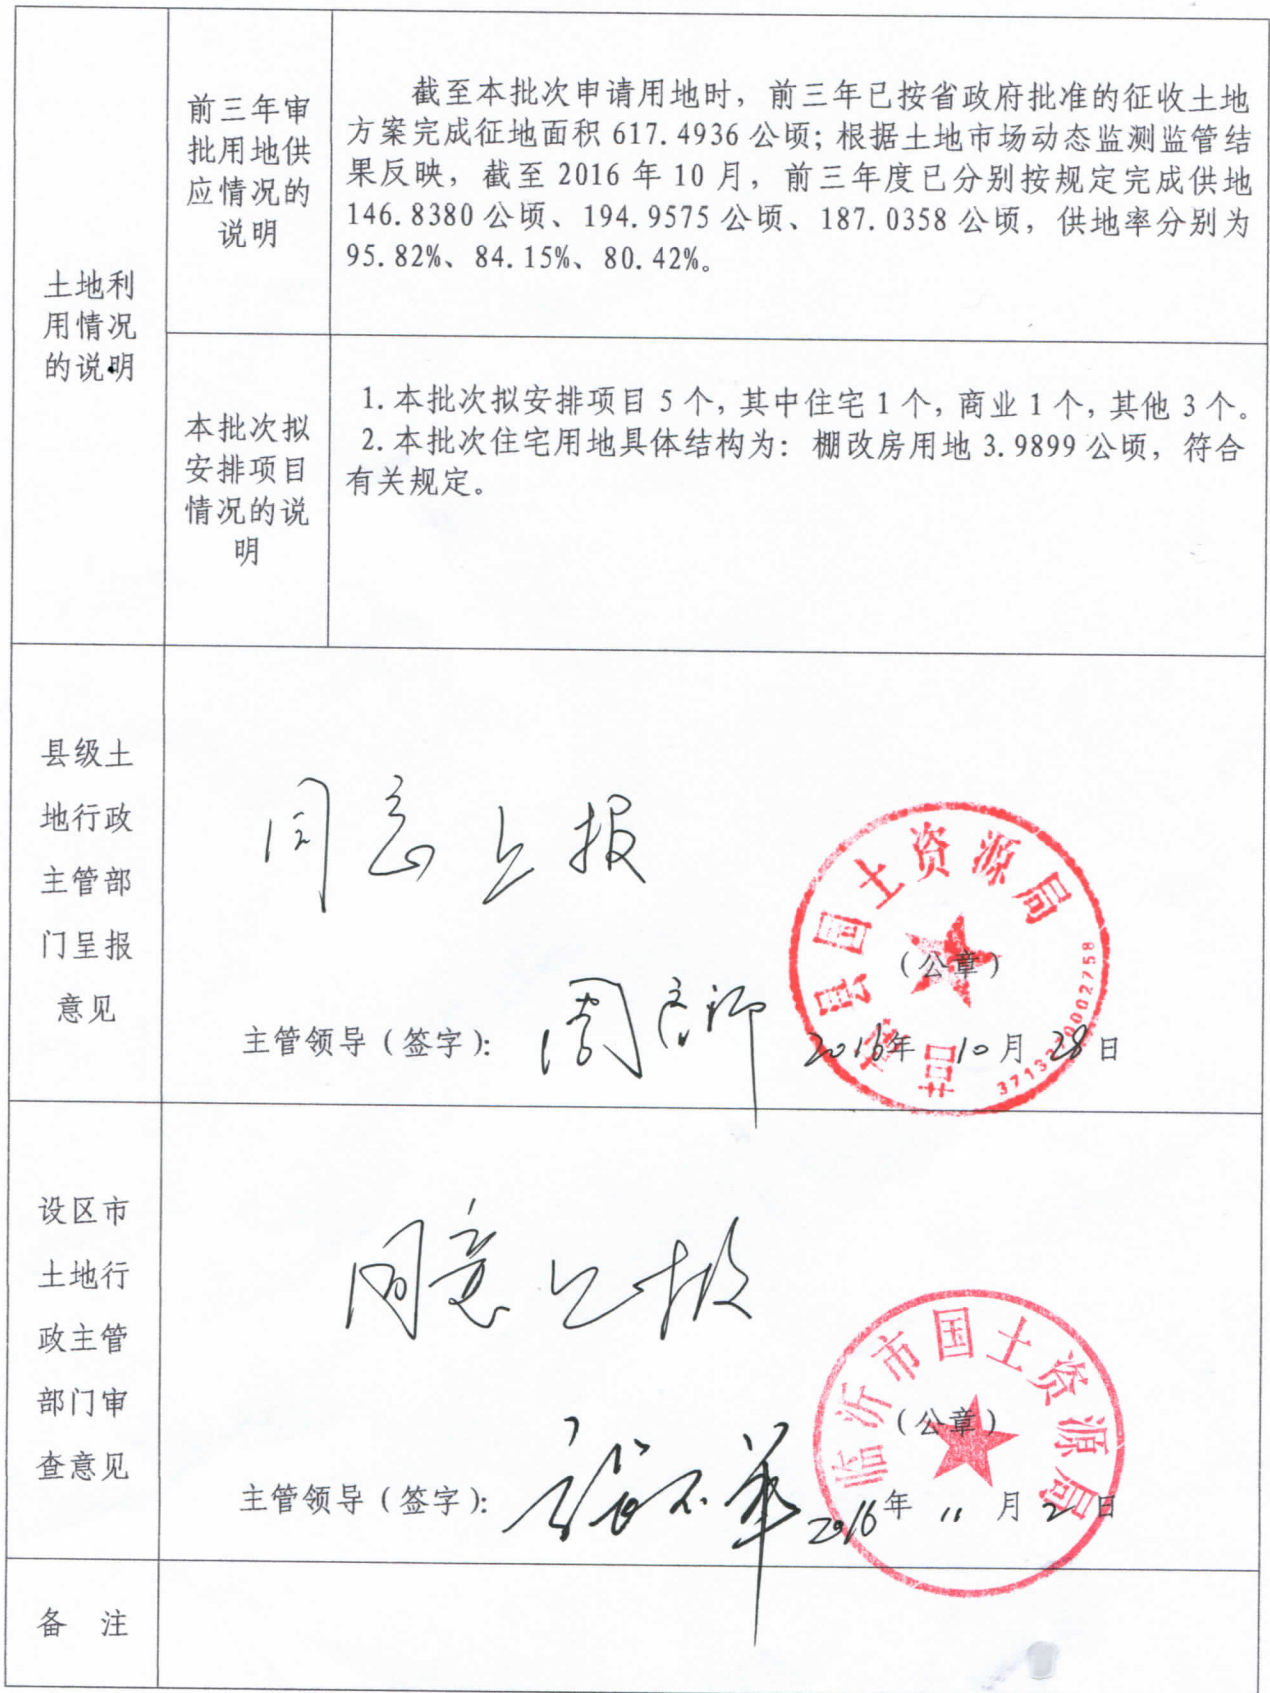 土地利
用情况
的说明
前三年审
批用地供
应情况的
说明
截至本批次申请用地时，前三年已按省政府批准的征收土地
方案完成征地面积 617.4936 公顷；根据土地市场动态监测监管结
果反映，截至 2016 年 10 月，前三年度已分别按规定完成供地
146.8380 公顷、194.9575 公顷、187.0358 公顷，供地率分别为
95.82%、84.15%、80.42%。
本批次拟
安排项目
情况的说
明
1.本批次拟安排项目 5 个，其中住宅 1 个，商业 1 个，其他 3 个。
2.本批次住宅用地具体结构为：棚改房用地 3.9899 公顷，符合
有关规定。
县级土
地行政
主管部
门呈报
意见
同意上报
莒南县国土资源局
（公章）
主管领导（签字）：
2016年 10月 28日
设区市
土地行
政主管
部门审
查意见
同意上报
临沂市国土资源局
（公章）
主管领导（签字）：
2016年 11月 2日
备 注